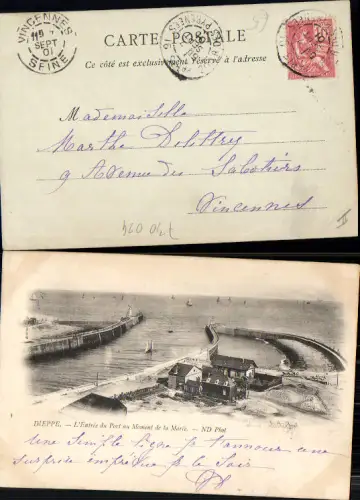 VINCENNES
SEPT
01
SEINE
CARTE POSTALE
Ce côté est exclusivement réservé à l'adresse
59
Mademoiselle
Marthe Delittry
9 Avenue des Sabotiers
Vincennes
730 024
DIEPPE. - L'Entrée du Port au Moment de la Marée. - ND Phot
Une simple ligne pr t'annoncer une
surprise imprévue pr le soir